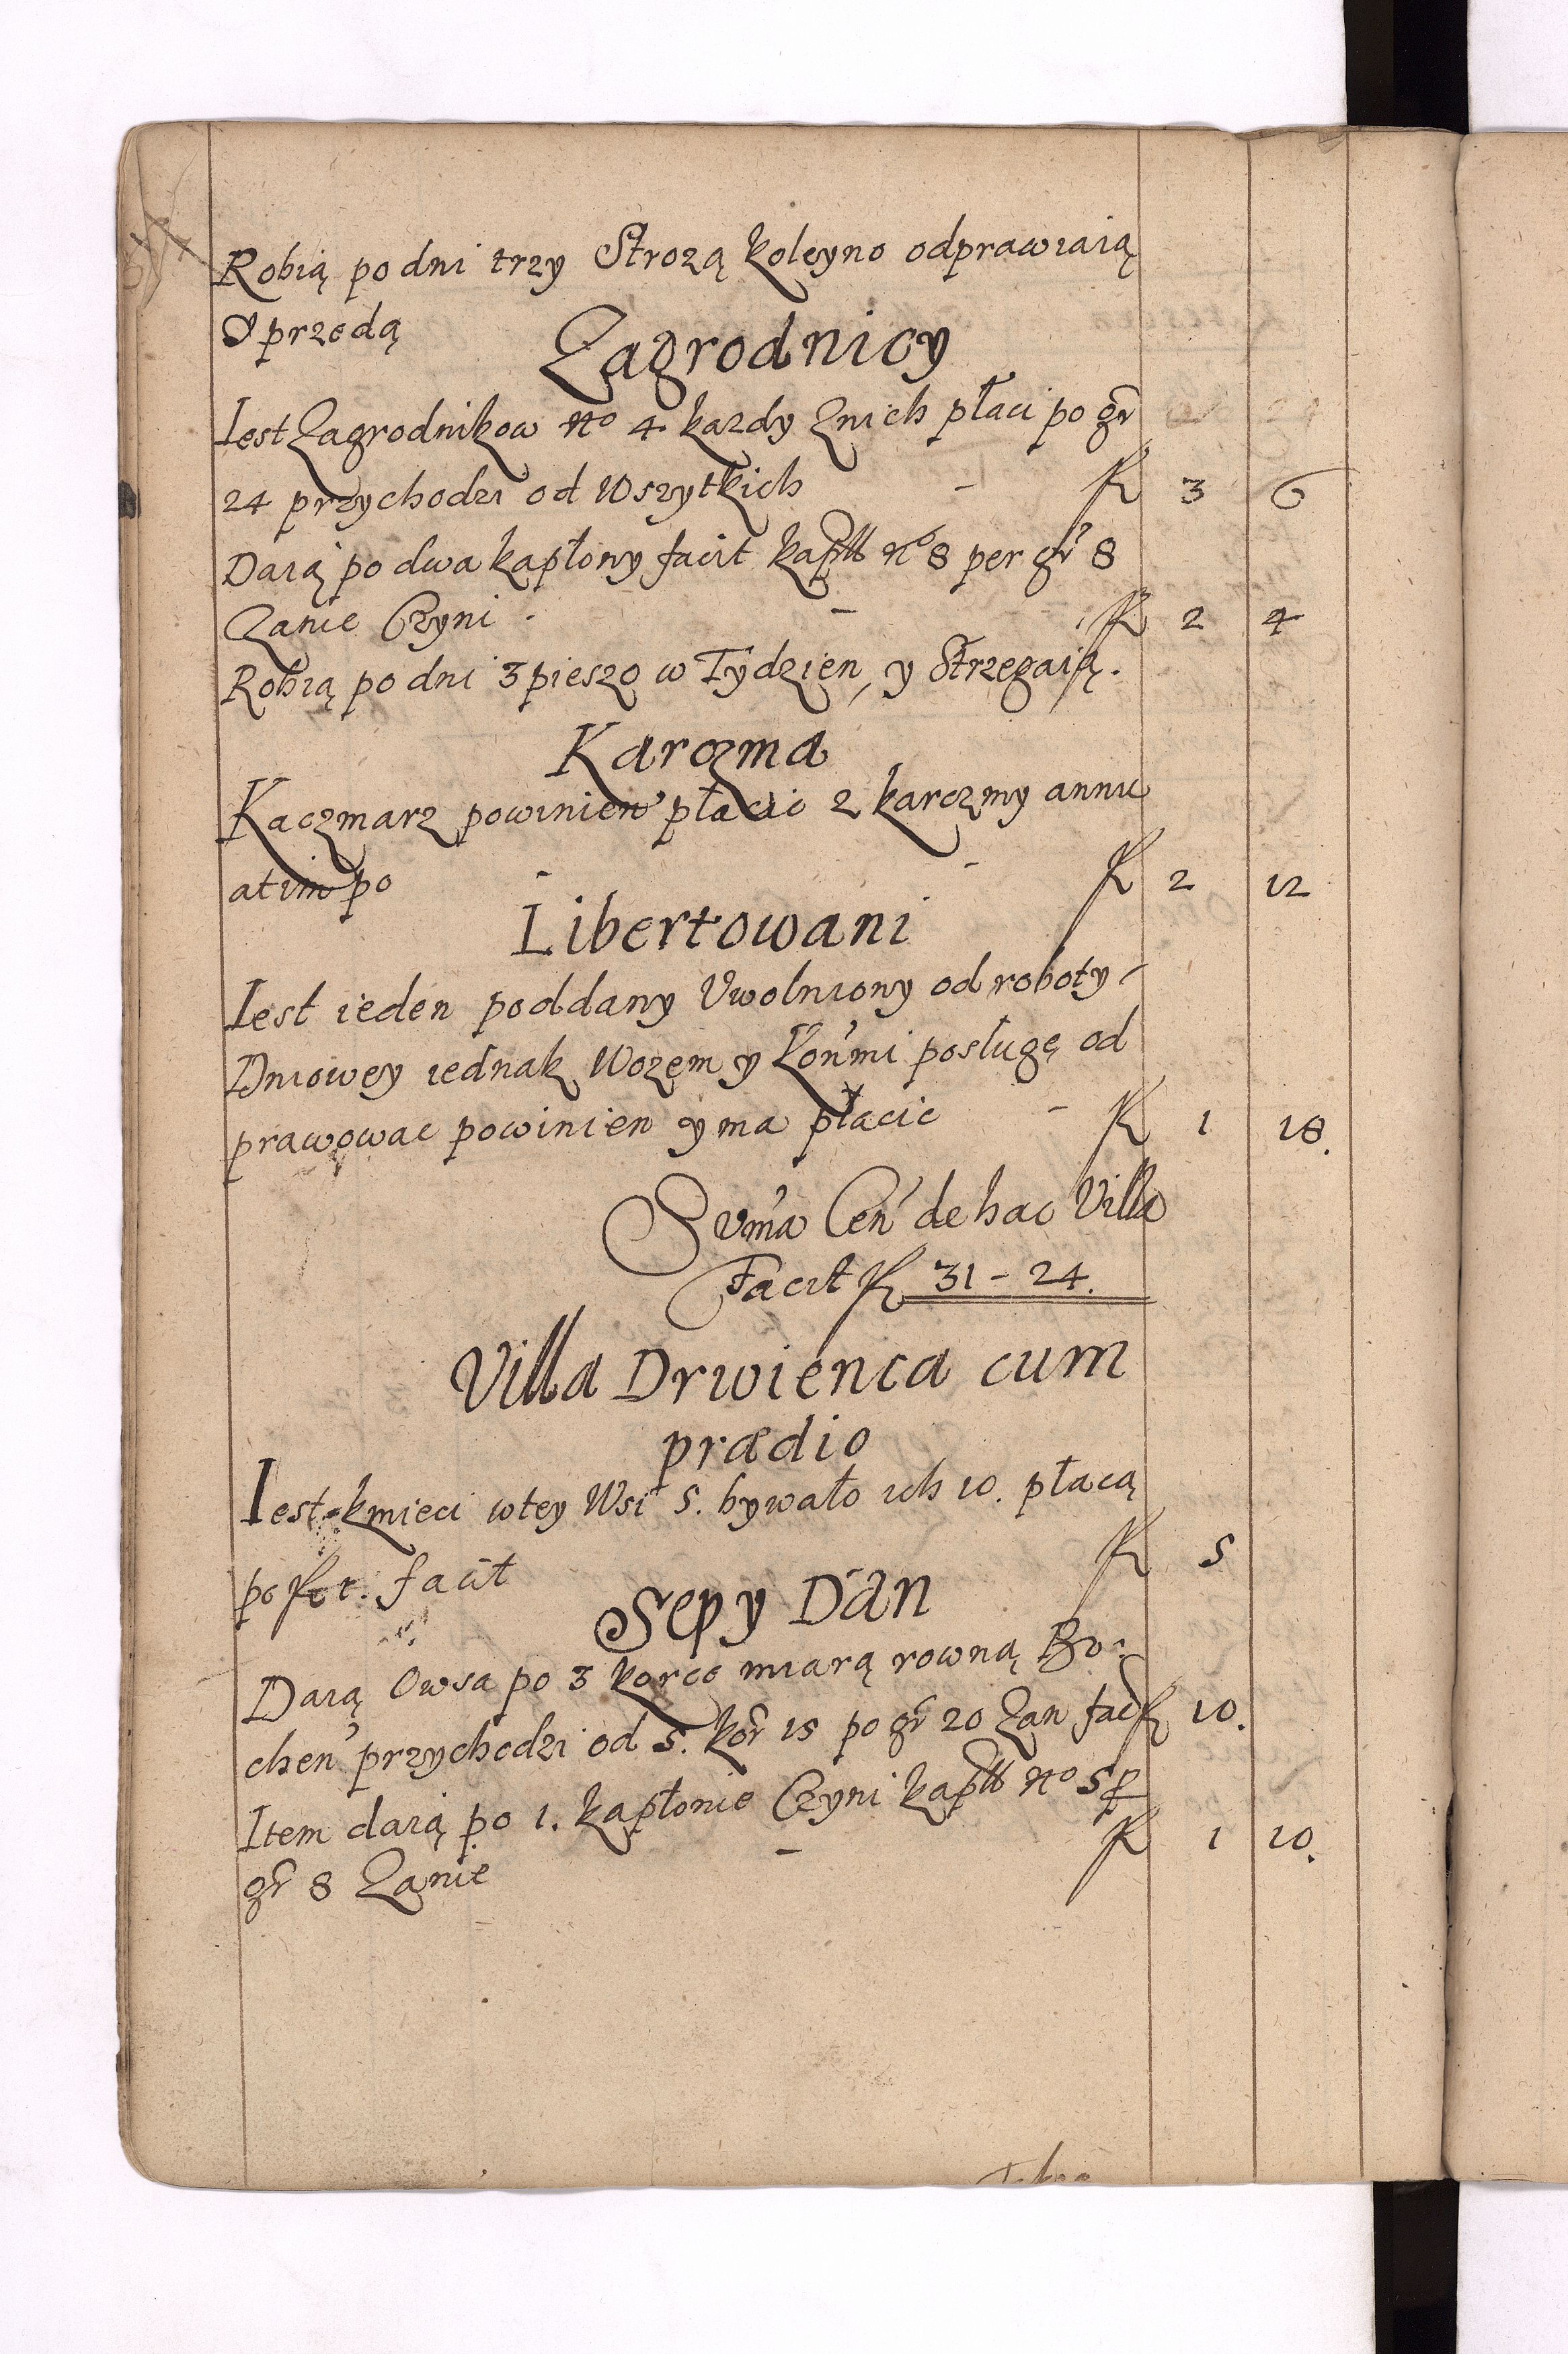 Robią po dni trzy Strozą koleyno odprawiaią
y przedą
Zagrodnicy
Iest Zagrodnikow no 4 kazdy Znich płaci po gr
24 przychodzi od Wszytkich - fl 3 6
Daią po dwa kapłony facit kapll no 8 per gr 8
Zanie Czyni - fl 2 4
Robią po dni 3 pieszo w Tydzien, y Strzegaią.
Karczma
Kaczmarz powinien płacic z karczmy annu
atim po - - fl 2 12
Libertowani
Iest ieden poddany Uwolniony od roboty
Dniowey iednak Wozem y Konmi posługę od
prawowac powinien y ma płacic - fl 1 18.
Suma Cen de hac Villa
Facit fl 31 - 24.
Villa Drwienca cum
prædio
Iest kmieci wtey Wsi 5. bywało ich 10. płacą
po fl 1. facit fl 5
Sepy Dan
Daią Owsa po 3 korce miarą rowną Bo:
chen przychodzi od 5. kor 15 po gr 20 Zan facit fl 10.
Item daią po 1. kapłonie Czyni kapll no 5 p
gr 8 Zanie - fl 1 10.